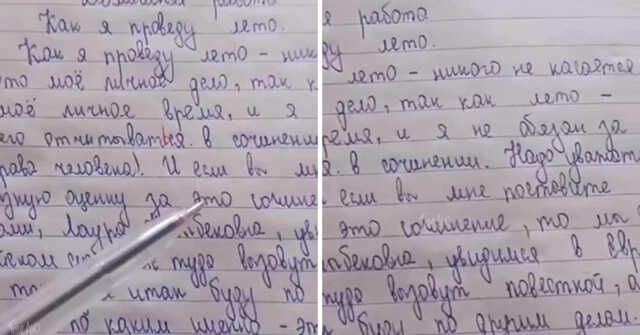 Как я проведу лето.
Как я проведу лето - ник
это моё личное дело, так к
моё личное время, и я
его отчитываться в сочинени
права человека! И если вы мн
оценку за это сочине
Лаура
туда вызовут
итак буду по
по каким именно - эт
я работа
ду лето.
лето - никого не касается
дело, так как лето -
ремя, и я не обязан за
я в сочинении. Надо уважат
если вы мне поставите
это сочинение, то мы
бековна, увидимся в Евр
туда вызовут повесткой, а
буду по другим делам.